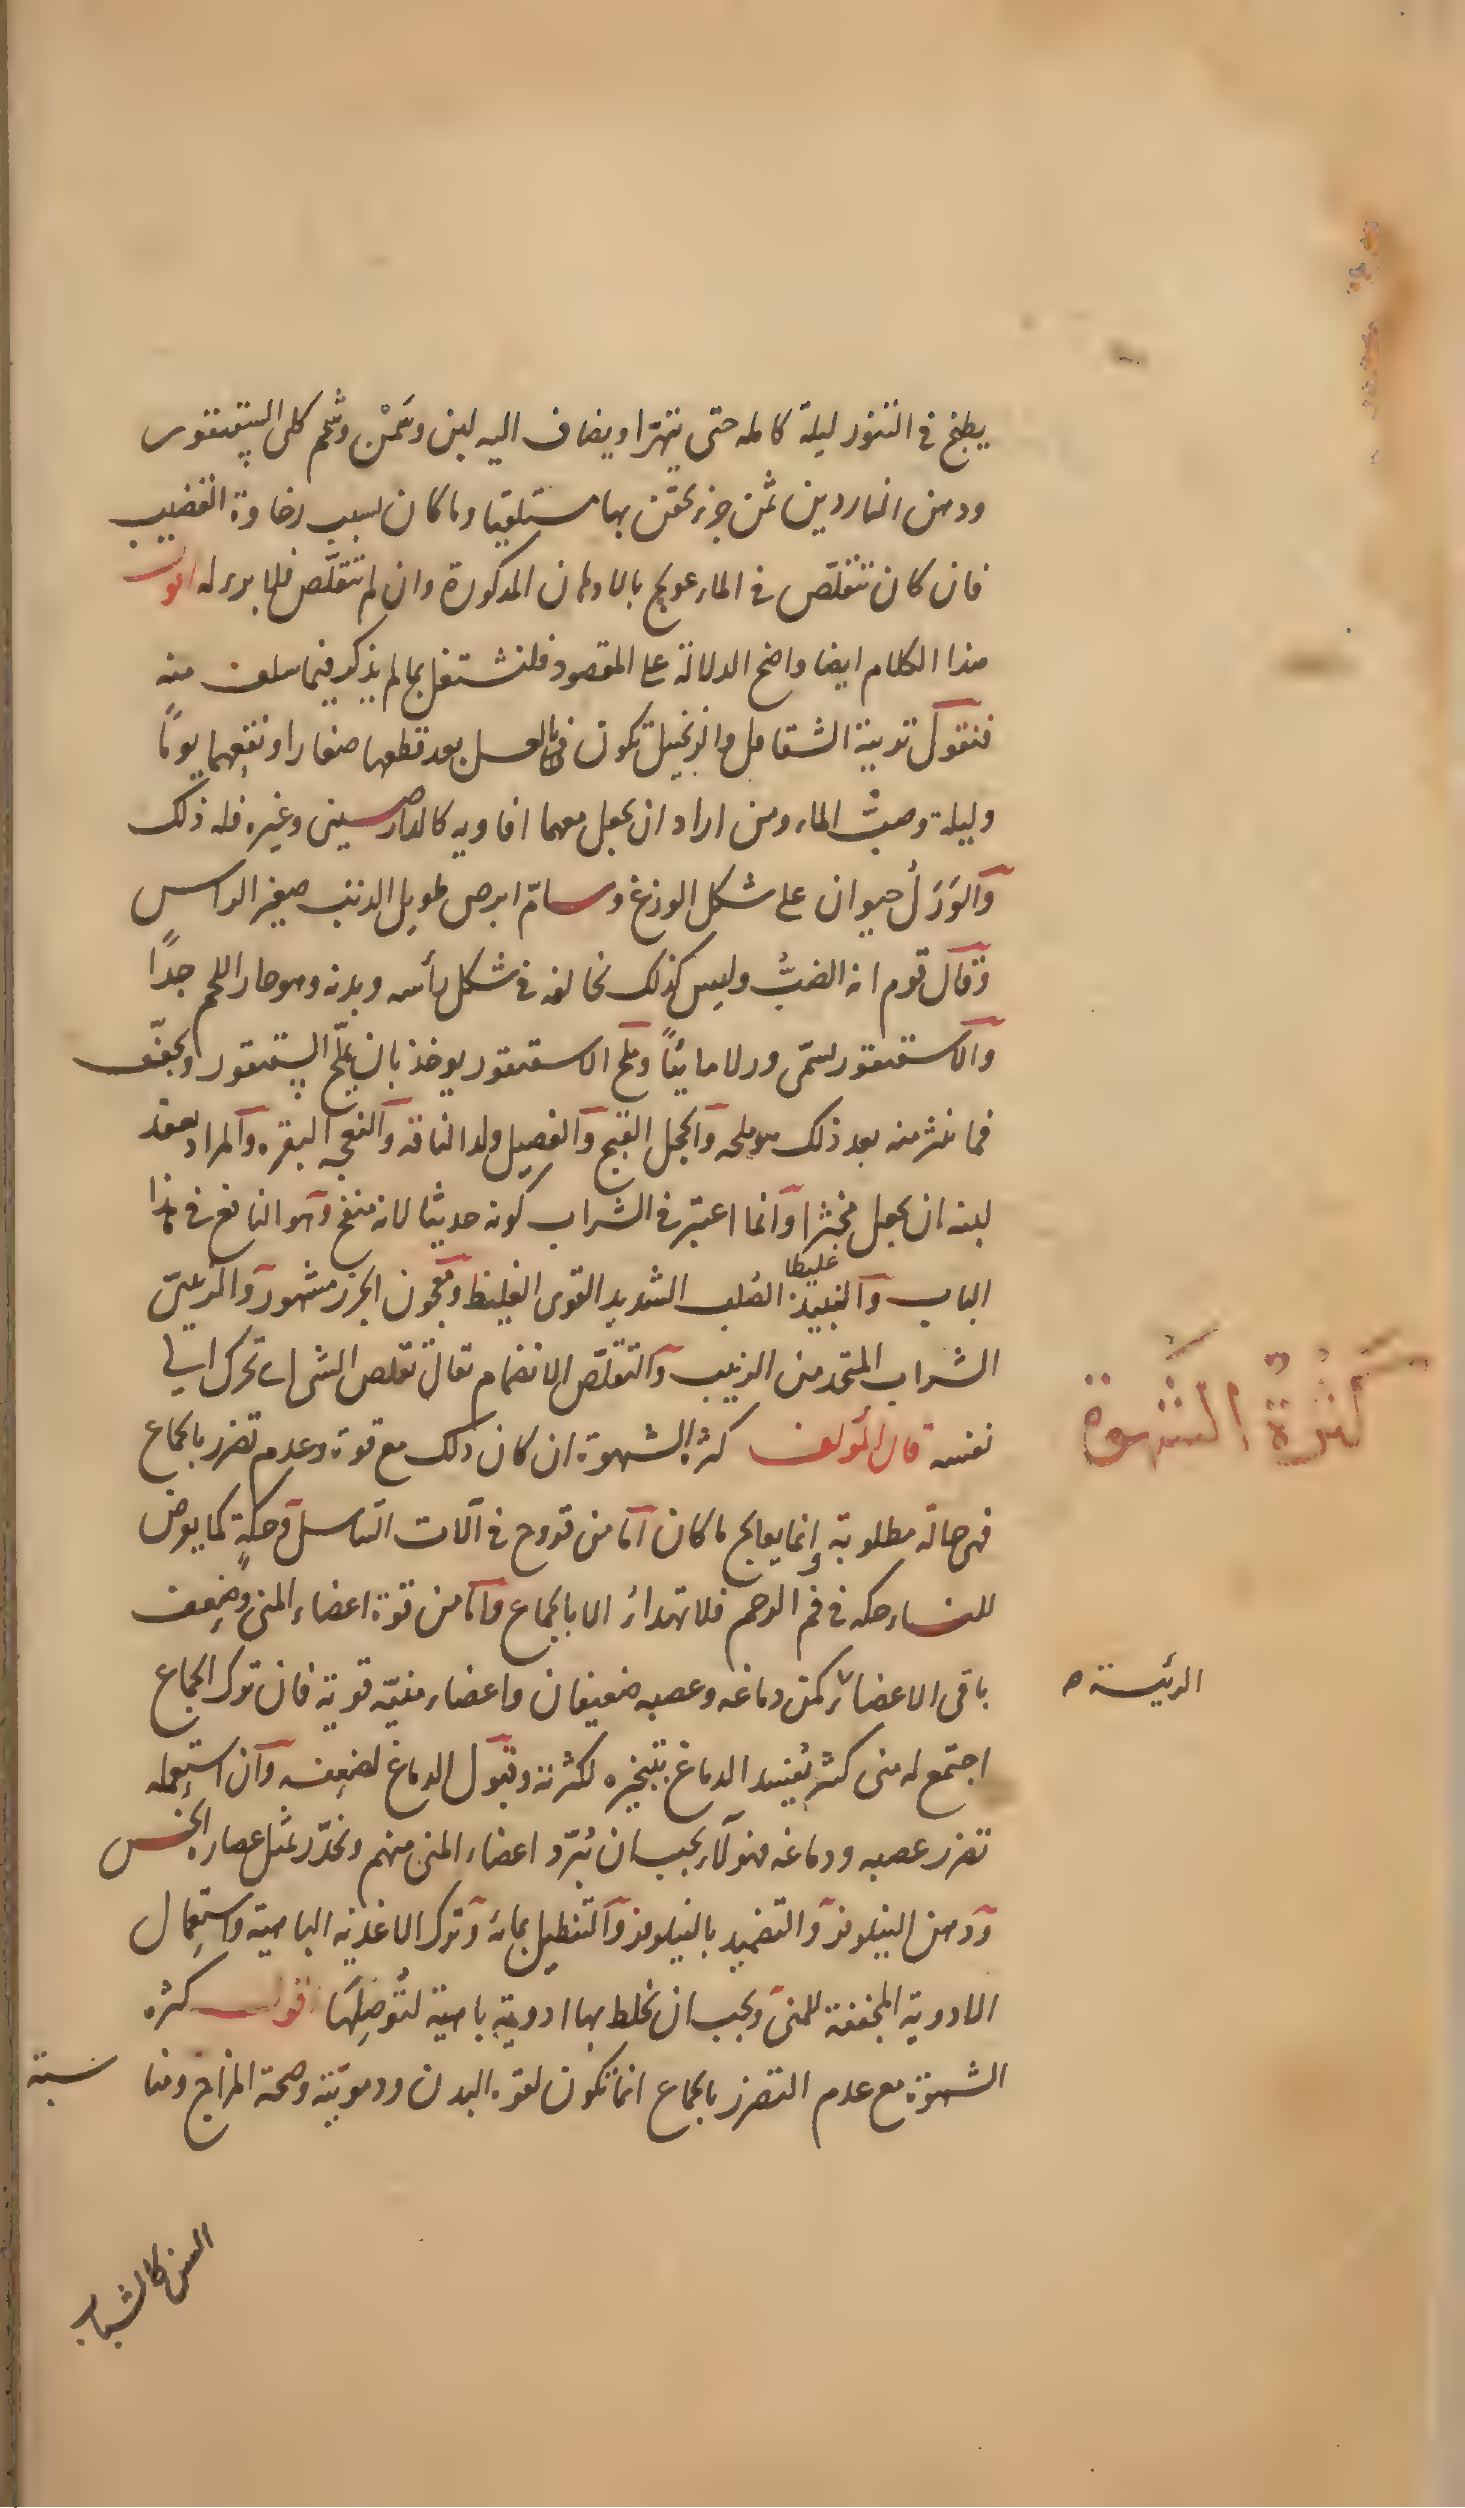 يطبخ في التنور ليلة كامله حتى يتهرا ويضاف اليه لبن وسَمْن وشحم كلى السقنقور
ودهن الناردين ثمن جزء يحقن بها مستلقيا وما كان بسبب رخاوة القضيب
فان كان تتقلّص في الماء عولج بالادهان المذكورة وان لم تتقلّص فلا برء له اقول
هذا الكلام ايضا واضح الدلالة على المقصود فلنشتغل بما لم يذكر فيما سلف منه
فنقول تربية الشقاقل والزنجبيل تكون في العسل بعد قطعها صغارا ونقعهما يومًا
وليلة وصبّ الماء ومن اراد ان يجعل معهما افاويه كالدارصيني وغيره فله ذلك
والوَرَلُ حيوان على شكل الوزغ وسامّ ابرص طويل الذنب صغير الراس
وقال قوم انه الضبُّ وليس كذلك يخالفه في شكل رأسه وبدنه وهو حار اللحم جدًا
والاسقنقور يسمّى ورلا مائيًا وملح الاسقنقور يوخذ بان يملّح السقنقور ويجفّف
فما نثر منه بعد ذلك هو ملحه والحجل القبج والفصيل ولد الناقه والنعجه البقره والمراد بعقد
لبنه ان يجعل مخثرا وانما اعتبر في الشراب كونه حديثا لانه منفخ وهو النافع في هذا
الباب والنبيذ غليظا الصُلب الشديد القوى الغليظ ومعجون الجزر مشهور والمرعيّ
الشراب المتخد من الزبيب والتقلّص الانضمام تقال تقلص الشي اي تحرك الي
نفسه قال المؤلف كثرة الشهوة ان كان ذلك مع قوة وعدم تضرر بالجماع
كثرة الشهوة
فهى حالة مطلوبة إنما يعالج ما كان اما من قروح في آلات التناسل او حكةٍ كما يعرض
للنساء حكه في فم الرحم فلا تهدأ الا بالجماع واما من قوة اعضاء المنى وضعف
باقى الاعضا الرئيسة كمن دماغه وعصبه ضعيفان واعضاء منيّه قوية فان ترك الجماع
اجتمع له منى كثير يُفسد الدماغ بتبخيره لكثرته وقبول الدماغ لضعفه وان استعمله
تضرر عصبه ودماغه فهولاء يجب ان يُبرّد اعضاء المنى منهم ويخدّر بمثل عصاره الخس
ودهن النيلوفر والتضميد بالنيلوفر والتنطيل بمائه وترك الاغذيه الباهية واستعمال
الادوية المجففة للمنى ويجب ان يخلط بها ادوية باهية لتُوصِلَها اقول كثره
الشهوة مع عدم التضرر بالجماع انما تكون لقوه البدن ودمويّته وصحة المزاج ومناسبته
السن كالشباب